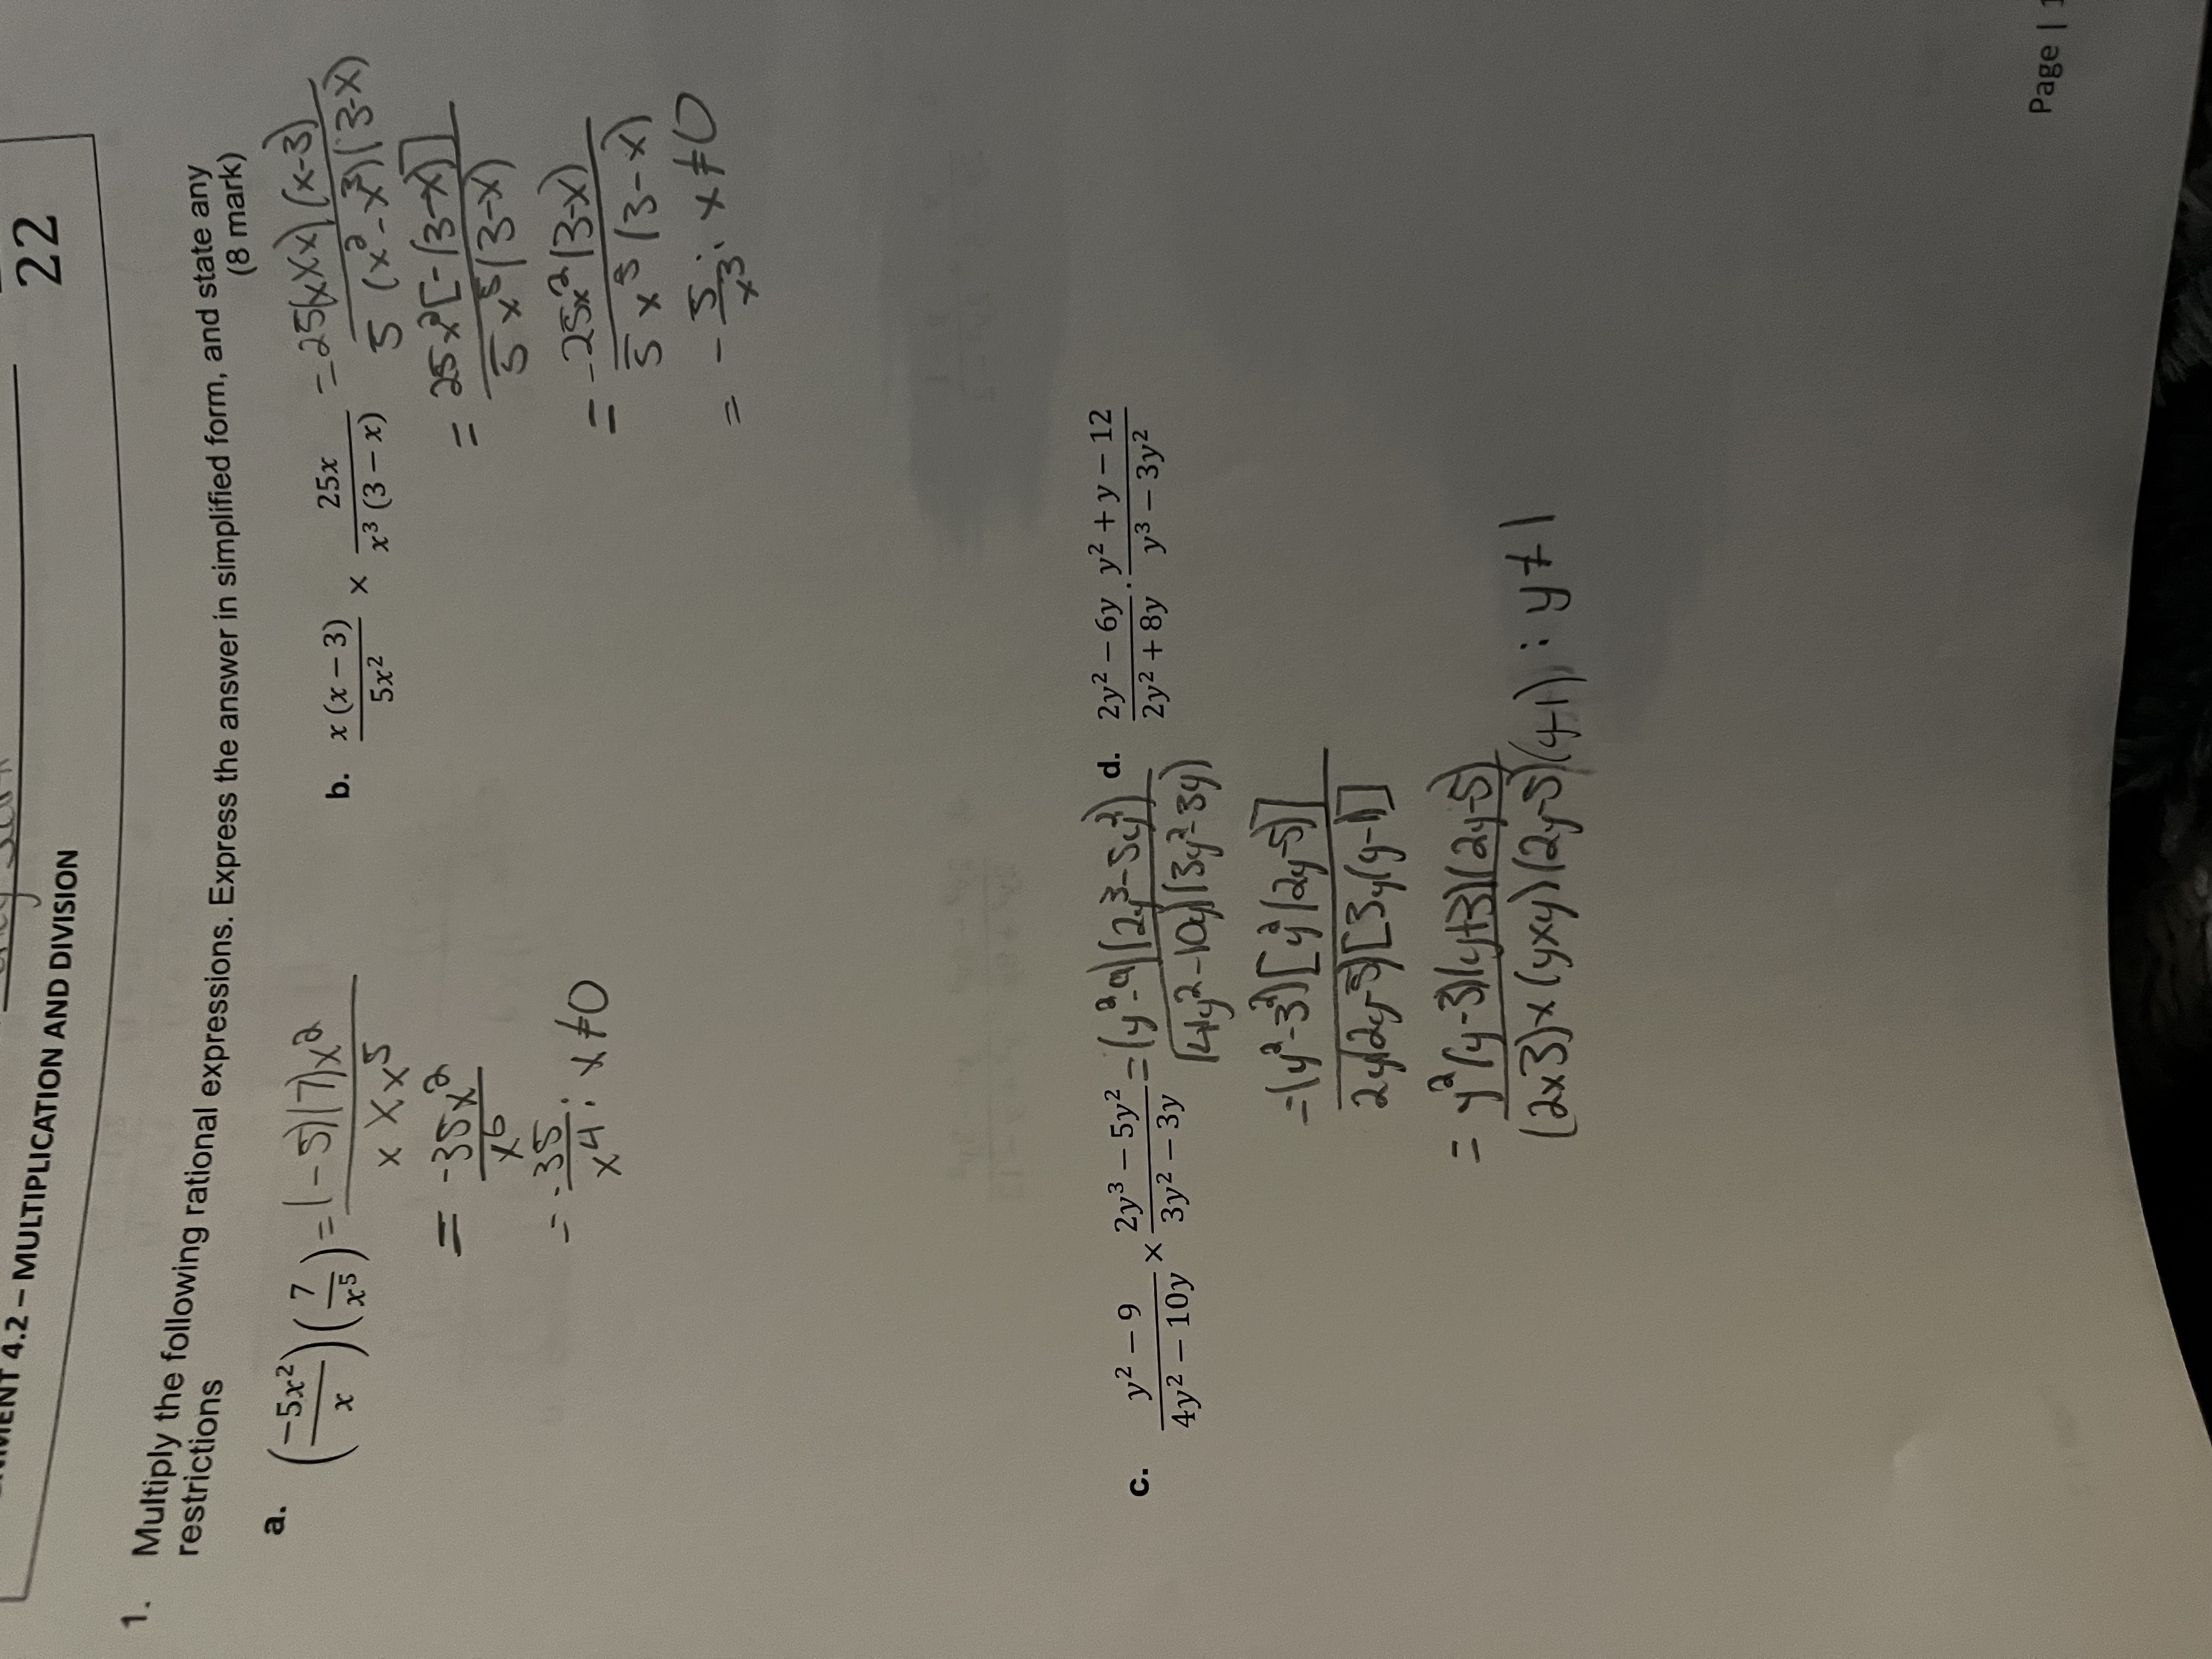 22
4.2 – MULTIPLICATION AND DIVISION
1. Multiply the following rational expressions. Express the answer in simplified form, and state any
restrictions (8 mark)
a. (−5x²/x)(7/x⁵) = (-5)(7)x² / x × x⁵
= -35x² / x⁶
= -35/x⁴ : x≠0
b. x(x − 3)/5x² × 25x/x³(3 − x) = 25(x×x)(x-3) / 5(x²-x³)(3-x)
= 25x²[-(3-x)] / 5x⁵(3-x)
= -25x²(3-x) / 5x⁵(3-x)
= -5/x³ : x≠0
c. y² − 9/4y² − 10y × 2y³ − 5y²/3y² − 3y = (y²-9)(2y³-5y²) / (4y²-10y)(3y²-3y)
= (y²-3²)[y²(2y-5)] / 2y(2y-5)[3y(y-1)]
= y²(y-3)(y+3)(2y-5) / (2x3)x(yxy)(2y-5)(y-1) : y≠1
d. 2y² − 6y/2y² + 8y · y² + y − 12/y³ − 3y²
Page |